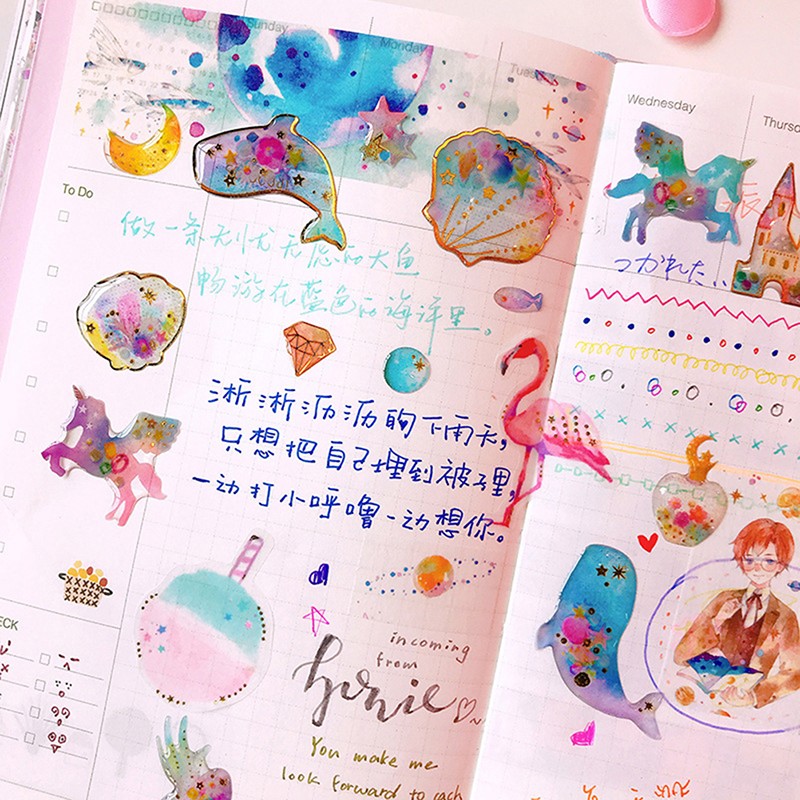 Sunday
Monday
Tues
Wednesday
Thursd
To Do
做一条无忧无虑的大鱼
畅游在蓝色的海洋里。
つかれた..
淅淅沥沥的下雨天,
只想把自己埋到被子里,
一边打小呼噜一边想你。
incoming
from
honie
You make me
look forward to each